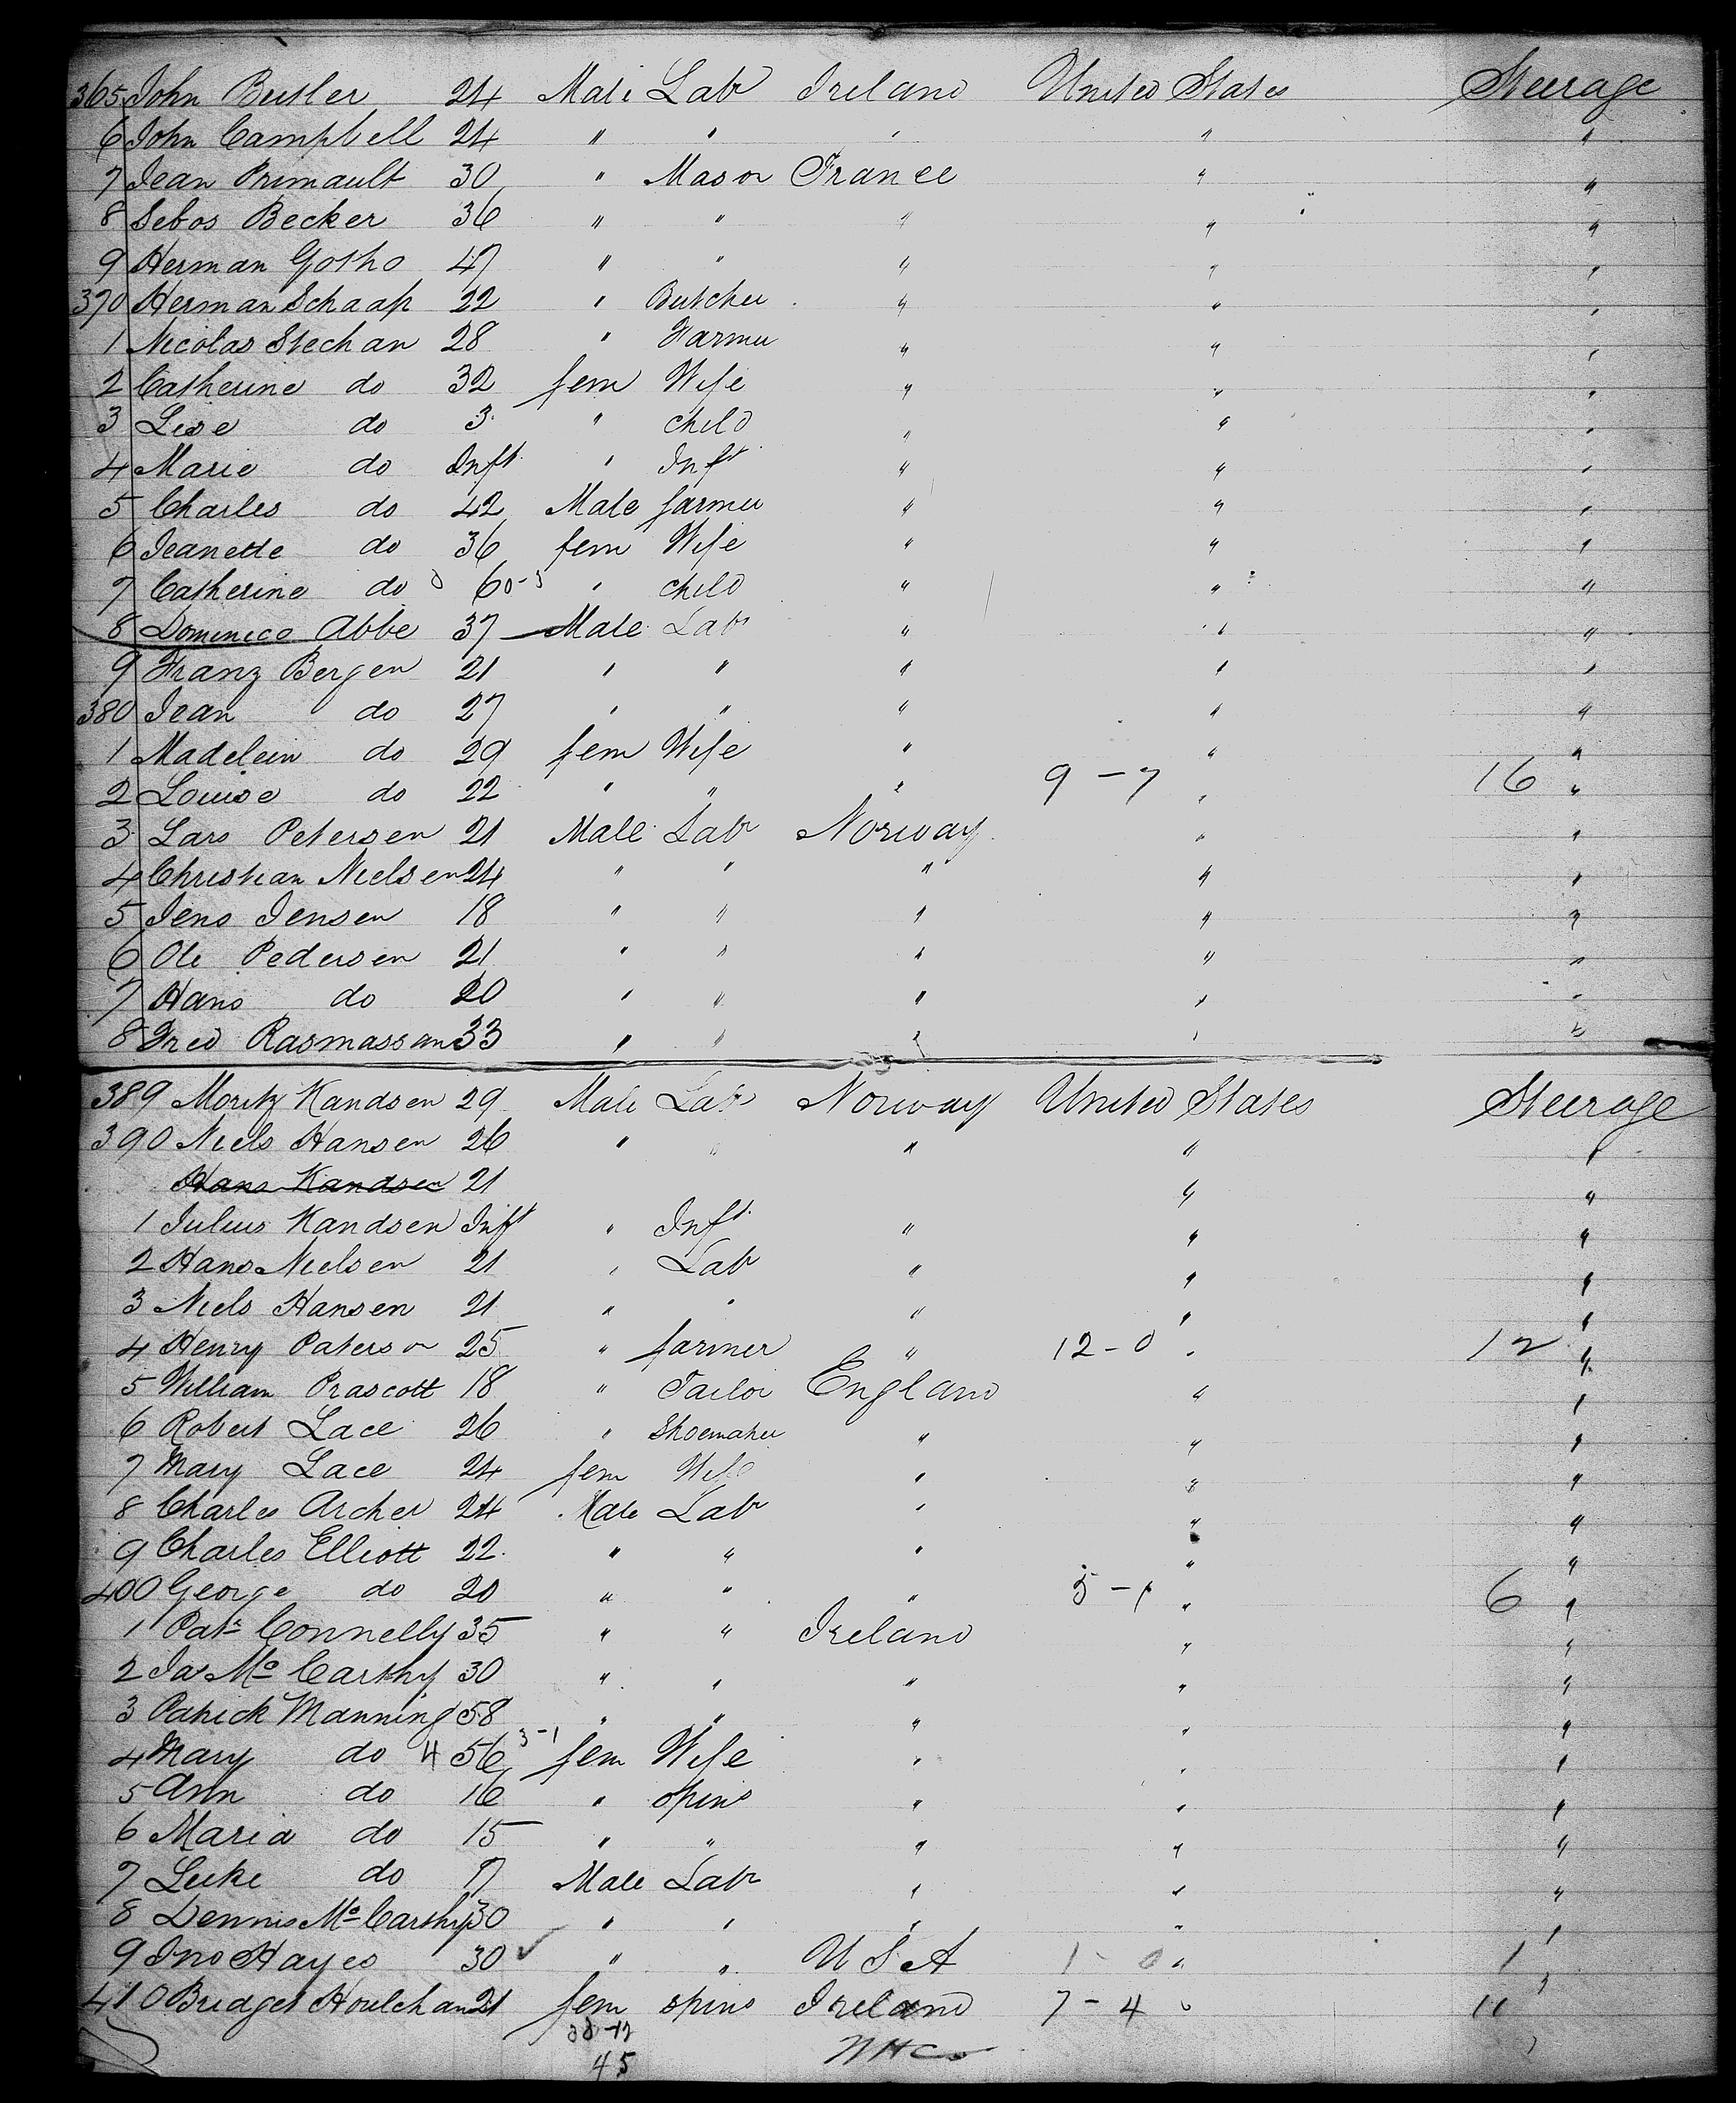 365 John Butler 24 Male Lab Ireland United States Steerage
6 John Campbell 24 " " " " "
7 Jean Primault 30 " Mason France " "
8 Sebos Becker 36 " " " " "
9 Herman Gotho 47 " " " " "
370 Herman Schaap 22 " Butcher " " "
1 Nicolas Stechan 28 " Farmer " " "
2 Catherine do 32 fem Wife " " "
3 Lise do 3 " child " " "
4 Marie do Inft " Inft " " "
5 Charles do 42 Male farmer " " "
6 Jeanette do 36 fem Wife " " "
7 Catherine do 6 " child " " "
8 Dominico Abbe 37 Male Lab " " "
9 Franz Bergen 21 " " " " "
380 Jean do 27 " " " " "
1 Madelein do 29 fem Wife " " "
2 Louise do 22 " " " 9-7 " 16 "
3 Lars Petersen 21 Male Lab Norway " "
4 Christian Nielsen 24 " " " " "
5 Jens Jensen 18 " " " " "
6 Ole Pedersen 21 " " " " "
7 Hans do 20 " " " " "
8 Fred Rasmassan 33 " " " " "
389 Moritz Kandsen 29 Male Lab Norway United States Steerage
390 Niels Hansen 26 " " " " "
Hans Kandsen 21 " "
1 Julius Kandsen Inft " Inft " " "
2 Hans Nielsen 21 " Lab " " "
3 Niels Hansen 21 " " " " "
4 Henry Paterson 25 " farmer " 12-0 " 12 "
5 William Prascott 18 " Tailor England " "
6 Robert Lace 26 " Shoemaker " " "
7 Mary Lace 24 fem Wife " " "
8 Charles Archer 24 Male Lab " " "
9 Charles Elliott 22 " " " " "
400 George do 20 " " " 5-1 " 6 "
1 Pat Connelly 35 " " Ireland " "
2 Ja Mc Carthy 30 " " " " "
3 Patrick Manning 58 " " " " "
4 Mary do 4 56 3-1 fem Wife " " "
5 Ann do 16 " spins " " "
6 Maria do 15 " " " " "
7 Luke do 17 Male Lab " " "
8 Dennis Mc Carthy 30 " " " " "
9 Jno Hayes 30 " " U S A 1-0 " 1 "
410 Bridget Houlchan 21 fem spins Ireland 7-4 " 11 "
45